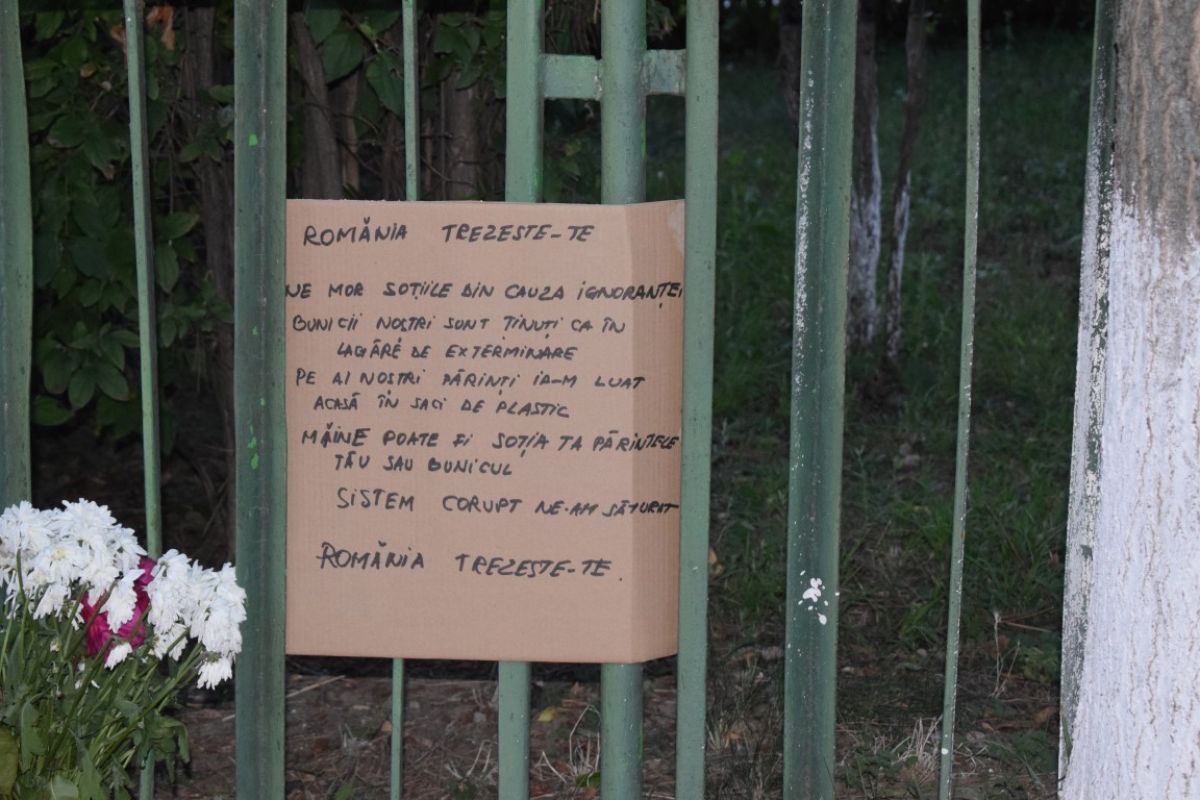 ROMĂNIA TREZESTE-TE
NE MOR SOȚIILE DIN CAUZA IGNORANȚEI
BUNICII NOȘTRI SUNT ȚINUȚI CA ÎN
LAGĂRE DE EXTERMINARE
PE AI NOSTRI PĂRINȚI IA-M LUAT
ACASĂ ÎN SACI DE PLASTIC
MĂINE POATE FI SOȚIA TA PĂRINTELE
TĂU SAU BUNICUL
SISTEM CORUPT NE-AM SĂTURAT
ROMĂNIA TREZESTE-TE.